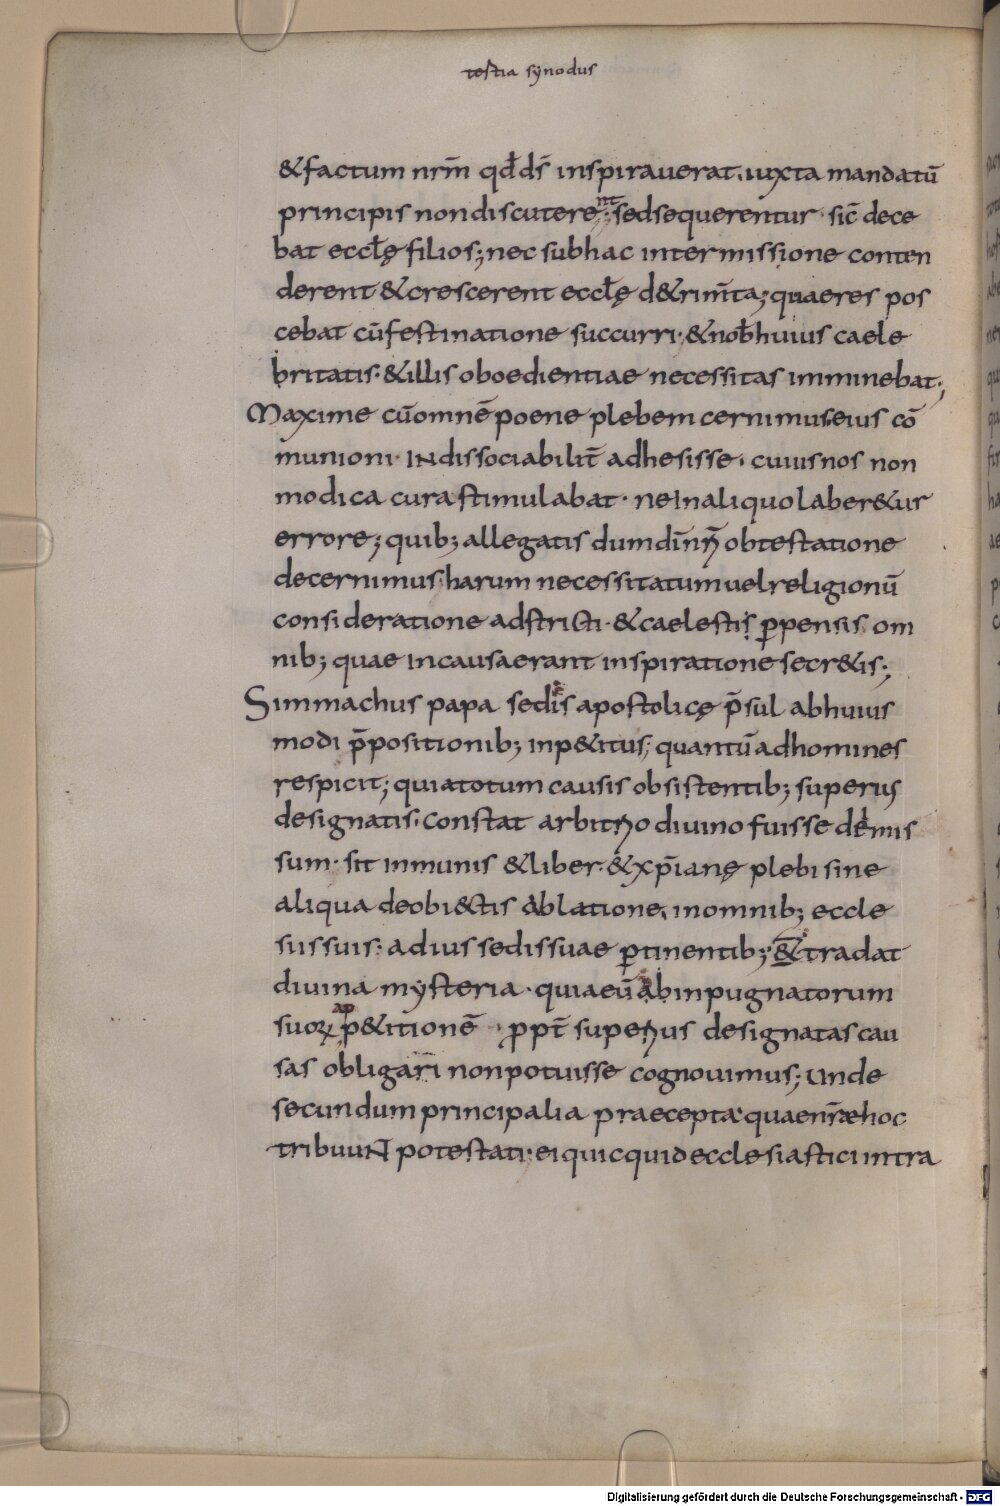 testia synodus
&factum nr̄m qd̄ ds̄ inspirauerat. iuxta mandatū
principis non discuterent; sed sequerentur · sic̄ dece
bat eccl̄ę filios; nec sub hac intermissione conten
derent & crescerent eccl̄ę d&rim̄ta; quaeres pos
cebat cū festinatione succurri · & nob̄ huius caele
britatis · & illis oboedientiae necessitas imminebat;
Maxime cū omnē poene plebem cernimus eius cō
munioni · INdissociabilit̄ adhesisse · cuius nos non
modica cura stimulabat · ne In aliquo laber&ur
errore; quib; allegatis dum din̄r̄ obtestatione
decernimus harum necessitatum uel religionū
consideratione adstricti · & caelestis p̱pensis om
nib; quae in causa erant inspiratione secr&is;
Simmachus papa sedis apostolicę p̄sul ab huius
modi p̄positionib; inp&itus; quantū ad homines
respicit; quia totum causis obsistentib; superus
designatis · constat arbitrio diuino fuisse demis
sum · sit inmunis & liber · & xp̄ianę plebi sine
aliqua de obiectis ablatione, in omnib; eccle
sus suis: ad ius sedis suae ꝑtinentib; & tradat
diuina mysteria · quia eū ab inpugnatorum
suoꝝ p&itionē · ꝓpt̄ superius designatas cau
sas obligari non potuisse cognouimus; unde
secundum principalia praecepta · quae nr̄ae hoc
tribuuN potestati · ei quicquid ecclesiastici intra
Digitalisierung gefördert durch die Deutsche Forschungsgemeinschaft - DFG